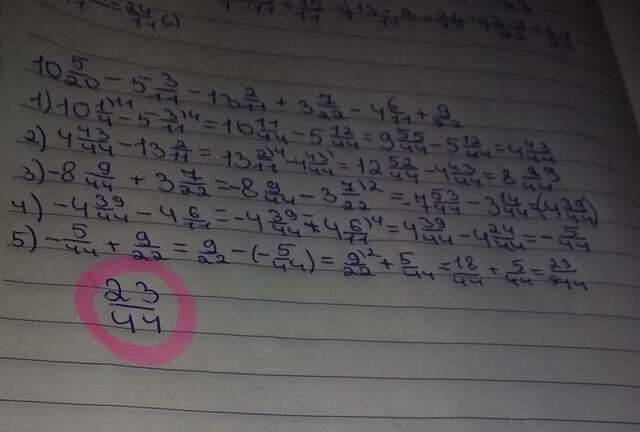 10 5/20 - 5 3/11 - 13 2/11 + 3 7/22 - 4 6/11 + 9/22
1) 10 1/4 - 5 3/11 = 10 11/44 - 5 12/44 = 9 55/44 - 5 12/44 = 4 43/44
2) 4 43/44 - 13 2/11 = 13 2/11 - 4 43/44 = 12 52/44 - 4 43/44 = 8 9/44
3) -8 9/44 + 3 7/22 = -8 9/44 - 3 7/22 = -7 53/44 - 3 14/44 = (4 39/44)
4) -4 39/44 - 4 6/11 = -4 39/44 + 4 6/11 = 4 39/44 - 4 24/44 = - 5/44
5) - 5/44 + 9/22 = 9/22 - (- 5/44) = 9/22 + 5/44 = 18/44 + 5/44 = 23/44
23/44